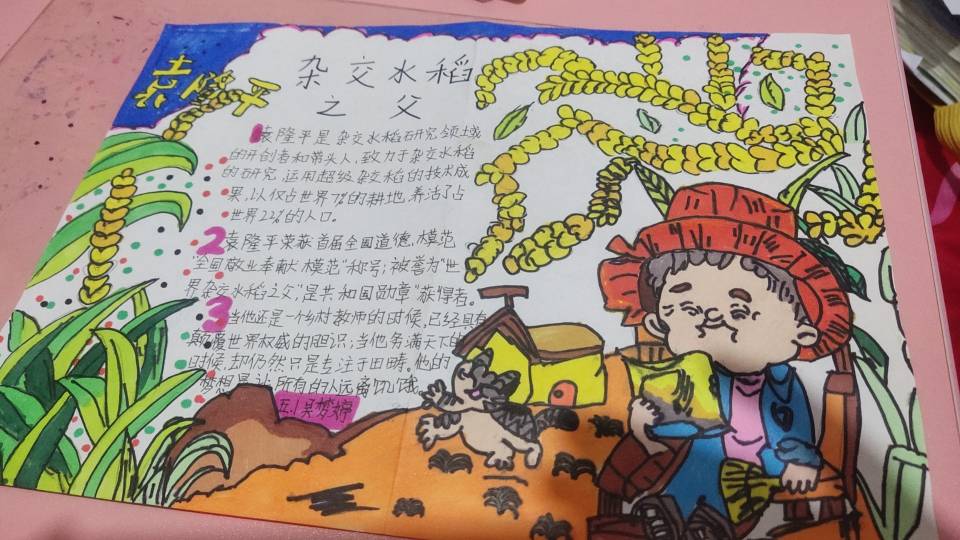 袁隆平
杂交水稻
之父
袁隆平是杂交水稻研究领域
的开创者和带头人，致力于杂交水稻
的研究，运用超级杂交稻的技术成
果，以仅占世界7%的耕地，养活了占
世界22%的人口。
2袁隆平荣获首届全国道德模范
"全国敬业奉献模范"称号；被誉为"世
界杂交水稻之父"，是共和国勋章"获得者。
3当他还是一个乡村教师的时候，已经具有
颠覆世界权威的胆识；当他名满天下的
时候，却仍然只是专注于田畴。他的
梦想是让所有的人远离饥饿
五.1吴梦婷